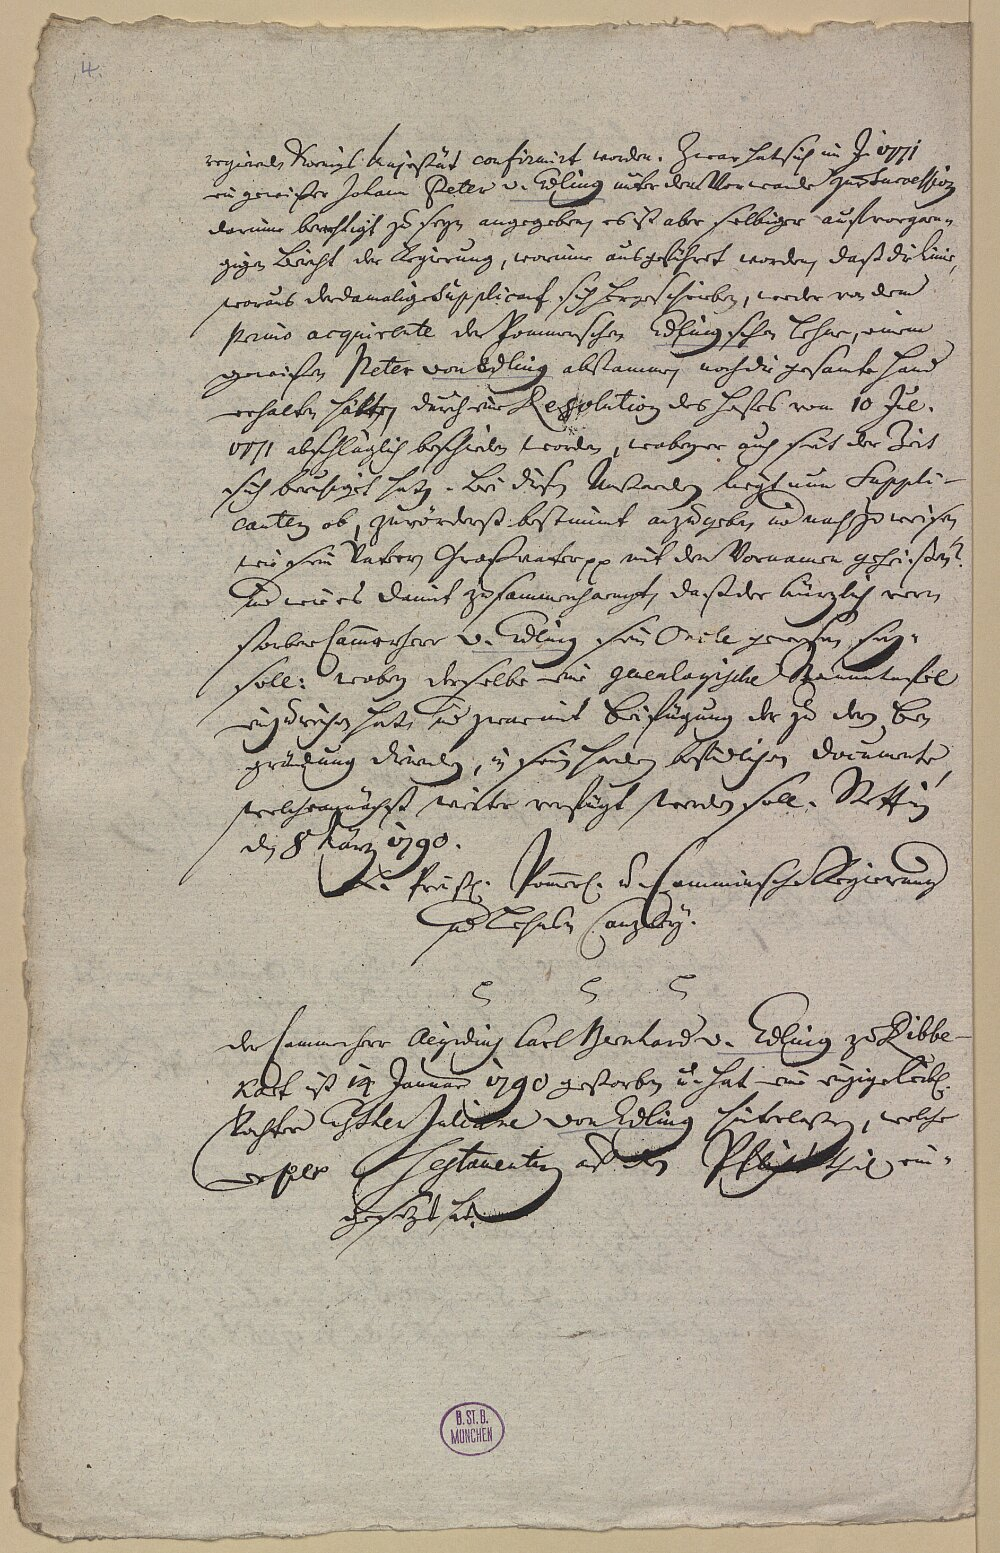 4.
regierenden Königs Majestät confirmirt worden. Zwar hat sich im J. 1771
ein gewisser Johann Peter v. Edling unter dem Vorwande zur Succession
darinne berechtigt zu seyn angegeben, es ist aber selbiger auf vorgän-
gigen Bericht der Regierung, worinne ausgeführet worden, daß die Linie,
woraus der damalige Supplicant sich herzuschreiben, weder von dem
primo acquirente der Pommerschen Edlingschen Lehne, einem
gewissen Peter von Edling abstammen, noch die gesamte Hand
erhalten hätten, durch eine Resolution des Hofes vom 10 Jul.
1771 abschläglich beschieden worden, wobey er auch seit der Zeit
sich beruhiget hat. Bei diesen Umständen liegt nun Suppli-
canten ob, zuvörderst bestimmt anzugeben und nachzuweisen
wie sein Vater, Großvater pp mit den Vornamen geheißen?
und wie es damit zusammenhange, daß der kürzlich vers
storbene Cammerherr v. Edling sein Oncle gewesen seyn
soll: wobey derselbe eine genealogische Stammtafel
einzureichen hat, und zwar mit Beifügung der zu deren Be-
gründung dienenden, in seinen Händen befindlichen Documente
welchemnächst weiter verfügt werden soll. Stettin
den 8 März 1790.
K. Preuß. Pommersch. u. Camminsche Regierung
und Lehns Canzley.
Der Cammerherr Aegidius Carl Bernhard v. Edling zu Ribbe-
kart ist 14 Januar 1790 gestorben u. hat eine einzige leibl.
Tochter Esther Juliane von Edling hinterlassen, welche
er per Testamentum auf den Pflichttheil ein-
gesetzt hat.
B. ST. B.
MÜNCHEN